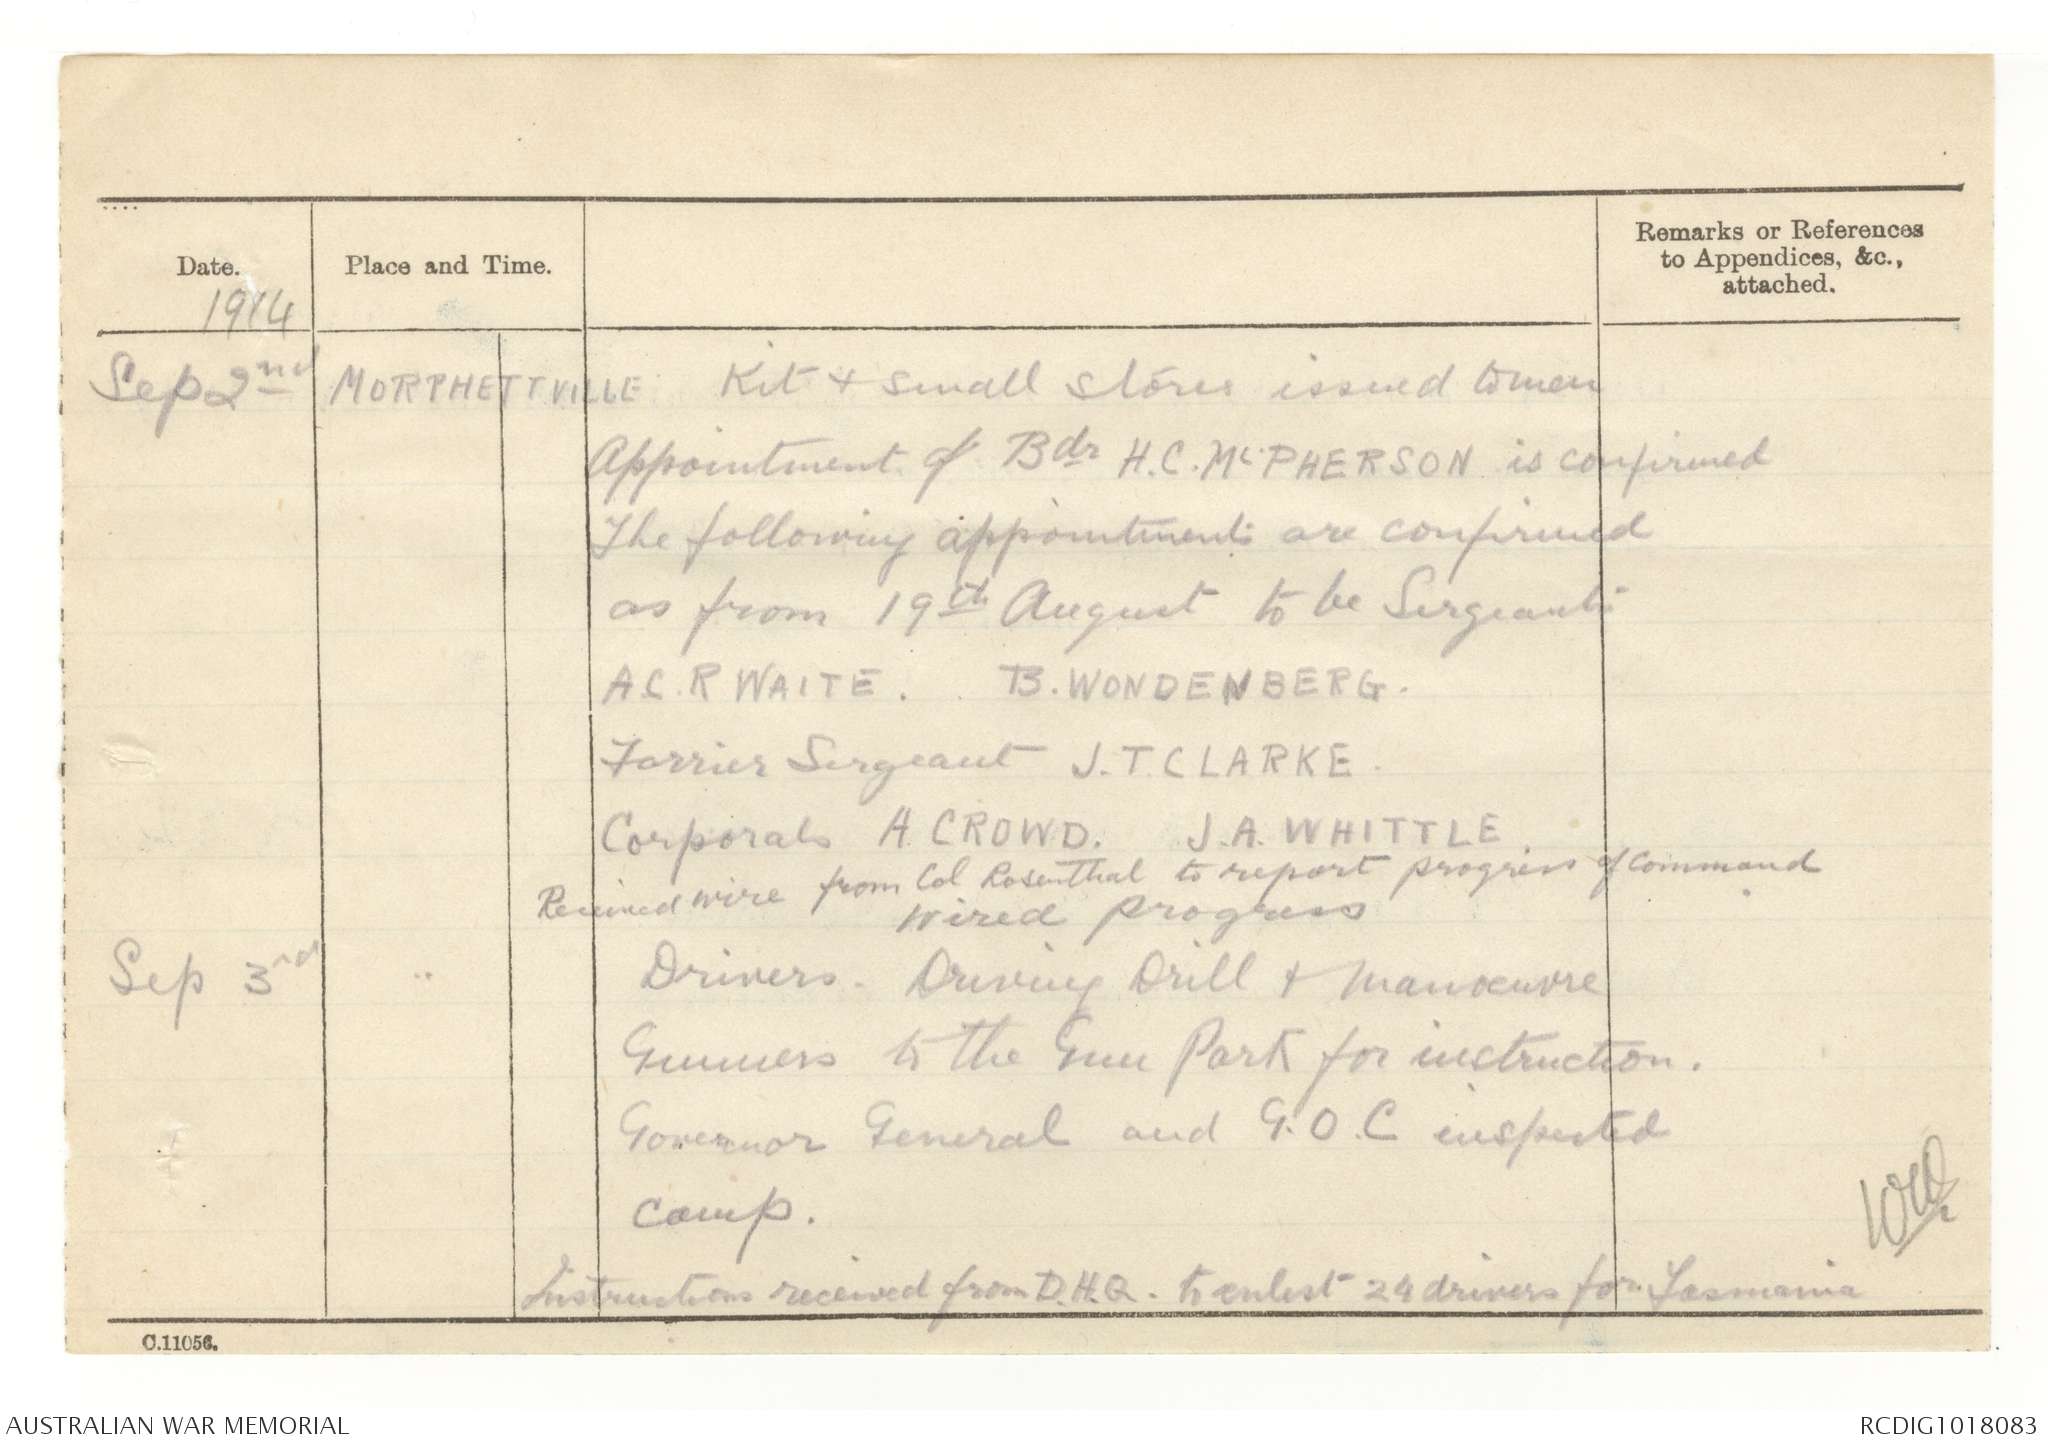 Date.
Place and Time.
Remarks or References
to Appendices, &c.,
attached.
1914
Sep 2nd MORPHETTVILLE Kit + small stores issued to men
Appointment of Bdr H.C. McPHERSON is confirmed
The following appointments are confirmed
as from 19th August to be Sergeants
A.C.R WAITE. B. WONDENBERG.
Farrier Sergeant J.T. CLARKE.
Corporals A CROWD. J.A. WHITTLE
Received wire from Col Rosenthal to report progress of command
Wired progress
Sep 3rd " Drivers. Driving Drill + Manoeuvre
Gunners to the Gun Park for instruction.
Governor General and G.O.C inspected
camp.
Instructions received from D.H.Q. to enlist 24 drivers for Tasmania
C.11056.
AUSTRALIAN WAR MEMORIAL
RCDIG1018083